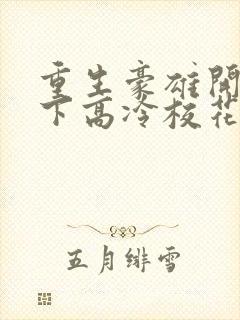 重生豪雄開
下高冷校花
五月緋雪